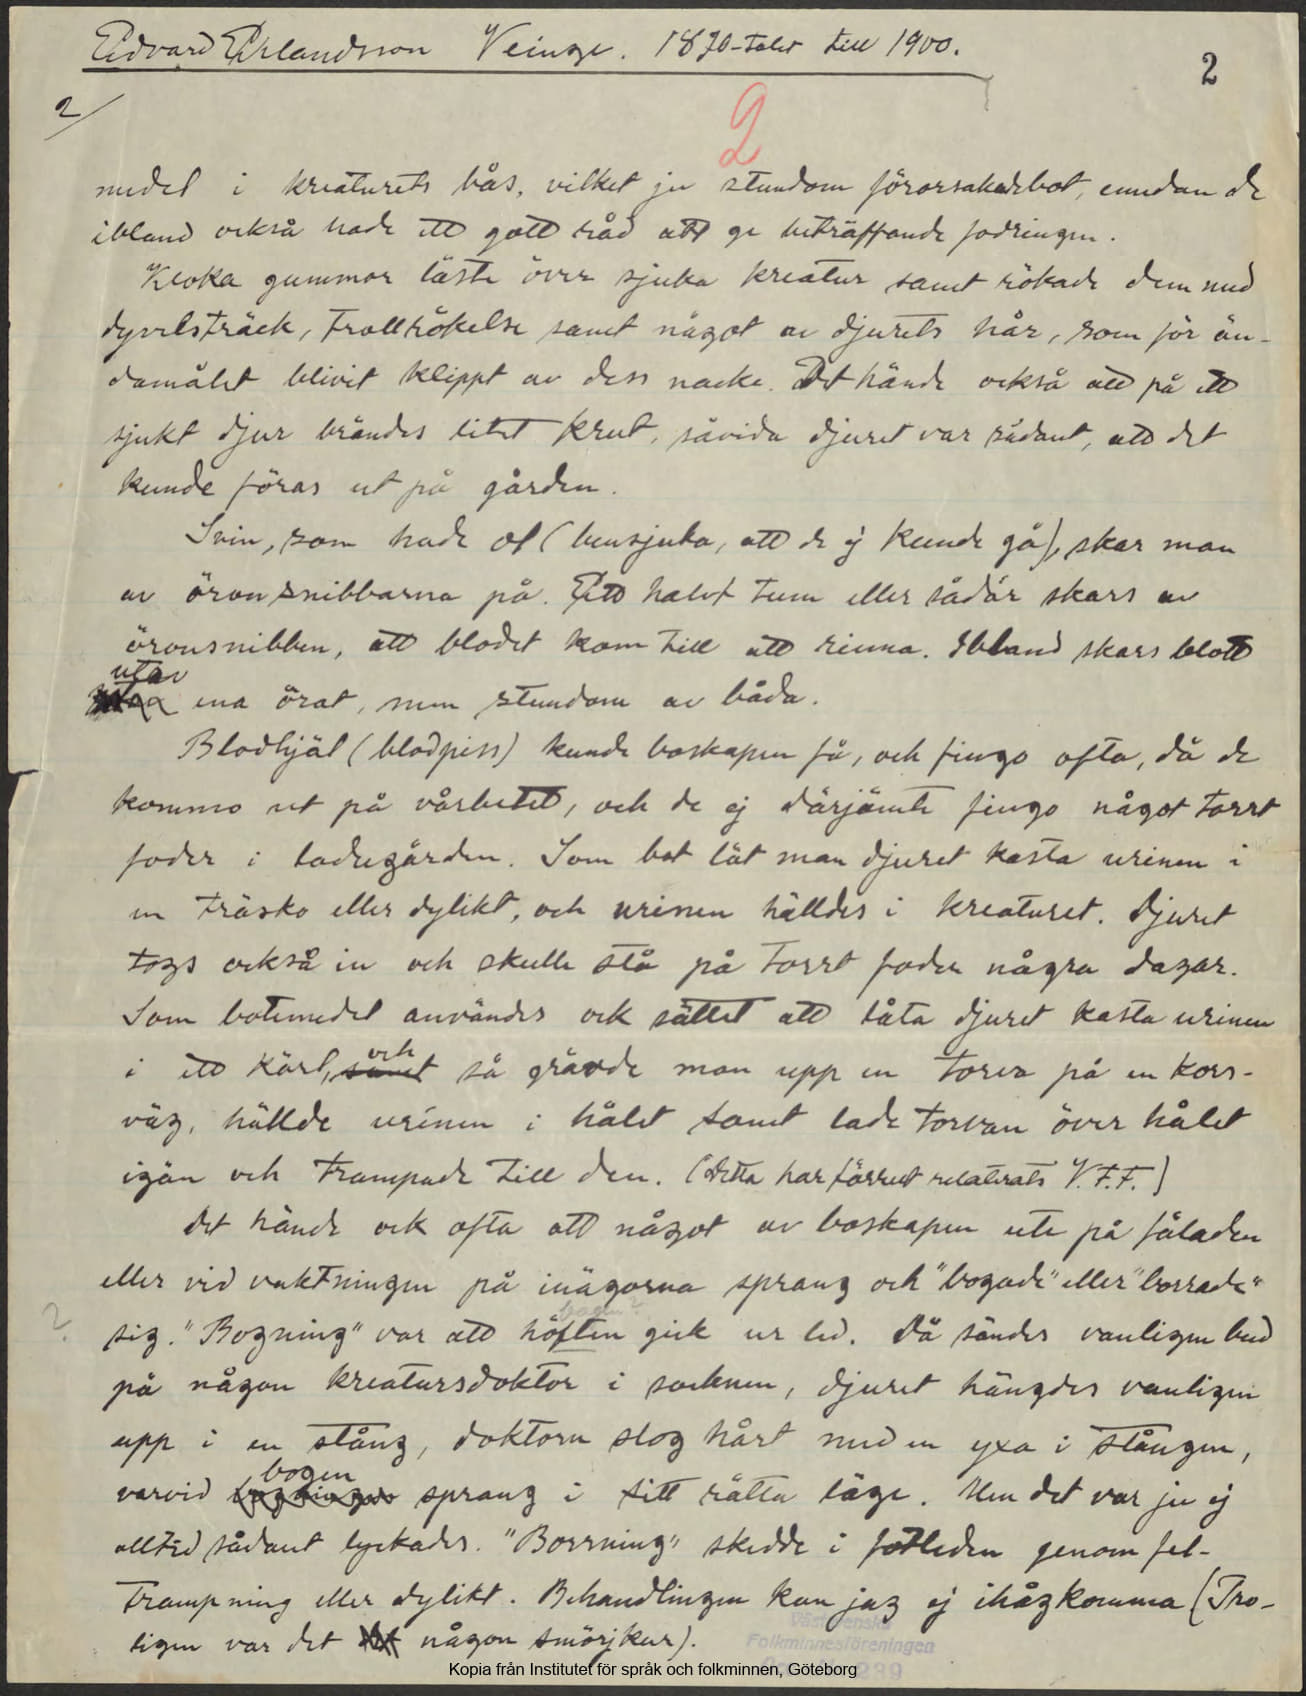 Edvard Erlandsson Veinge. 1870-talet till 1900.
2
2/
2
medel i kreaturets bås, vilket ju stundom förorsakade bot, emedan de
ibland också hade ett gott råd att ge beträffande fodringen.
Kloka gummor läste över sjuka kreatur samt rökade dem med
dyvelsträck, trollrökelse samt något av djurets hår, som för än-
damålet blivit klippt av dess nacke. Det hände också att på ett
sjukt djur brändes litet krut, såvida djuret var sådant, att det
kunde föras ut på gården.
Svin, som hade ol (bensjuka, att de ej kunde gå), skar man
av öronsnibbarna på. Ett halvt tum eller sådär skars av
öronsnibben, att blodet kom till att rinna. Ibland skars blott
utav
ena örat, men stundom av båda.
Blodhjäl (blodpiss) kunde boskapen få, och fingo ofta, då de
kommo ut på vårbetet, och de ej därjämte fingo något torrt
foder i ladugården. Som bot lät man djuret kasta urinen i
en träsko eller dylikt, och urinen hälldes i kreaturet. Djuret
togs också in och skulle stå på torrt foder några dagar.
Som botemedel användes ock sättet att låta djuret kasta urinen
i ett kärl, samt och så grävde man upp en torva på en kors-
väg, hällde urinen i hålet samt lade torvan över hålet
igän och trampade till den. (Detta har förrut relaterats V.F.F.)
Det hände ock ofta att något av boskapen ute på fäladen
eller vid vaktningen på inägorna sprang och "bogade" eller "borrade"
bogen?
? sig. "Bogning" var att höften gick ur led. Då sändes vanligen bud
på någon kreatursdoktor i socknen, djuret hängdes vanligen
upp i en stång, doktorn slog hårt med en yxa i stången,
bogen
varvid bogningen sprang i sitt rätta läge. Men det var ju ej
alltid sådant lyckades. "Borrning" skedde i fotleden genom fel-
trampning eller dylikt. Behandlingen kan jag ej ihågkomma (Tro-
ligen var det någon smörjkur).
Västsvenska
Folkminnesföreningen
Kopia från Institutet för språk och folkminnen, Göteborg